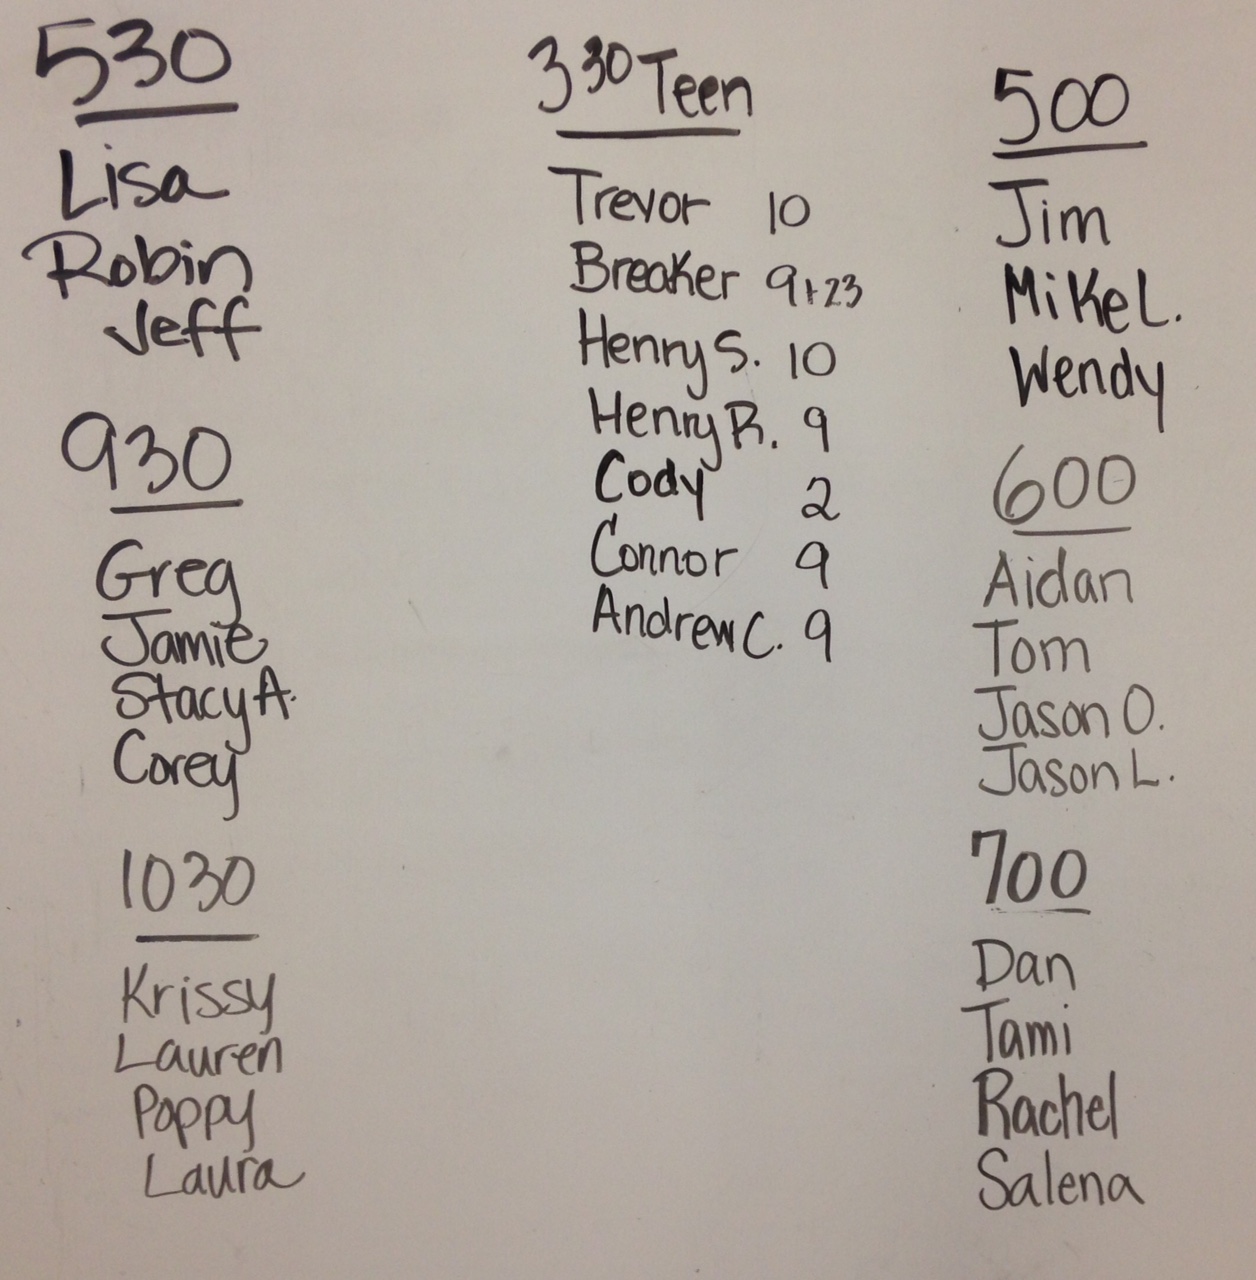 530
Lisa
Robin
Jeff
930
Greg
Jamie
Stacy A.
Corey
1030
Krissy
Lauren
Poppy
Laura
330 Teen
Trevor 10
Breaker 9+23
Henry S. 10
Henry R. 9
Cody 2
Connor 9
Andrew C. 9
500
Jim
Mike L.
Wendy
600
Aidan
Tom
Jason O.
Jason L.
700
Dan
Tami
Rachel
Salena